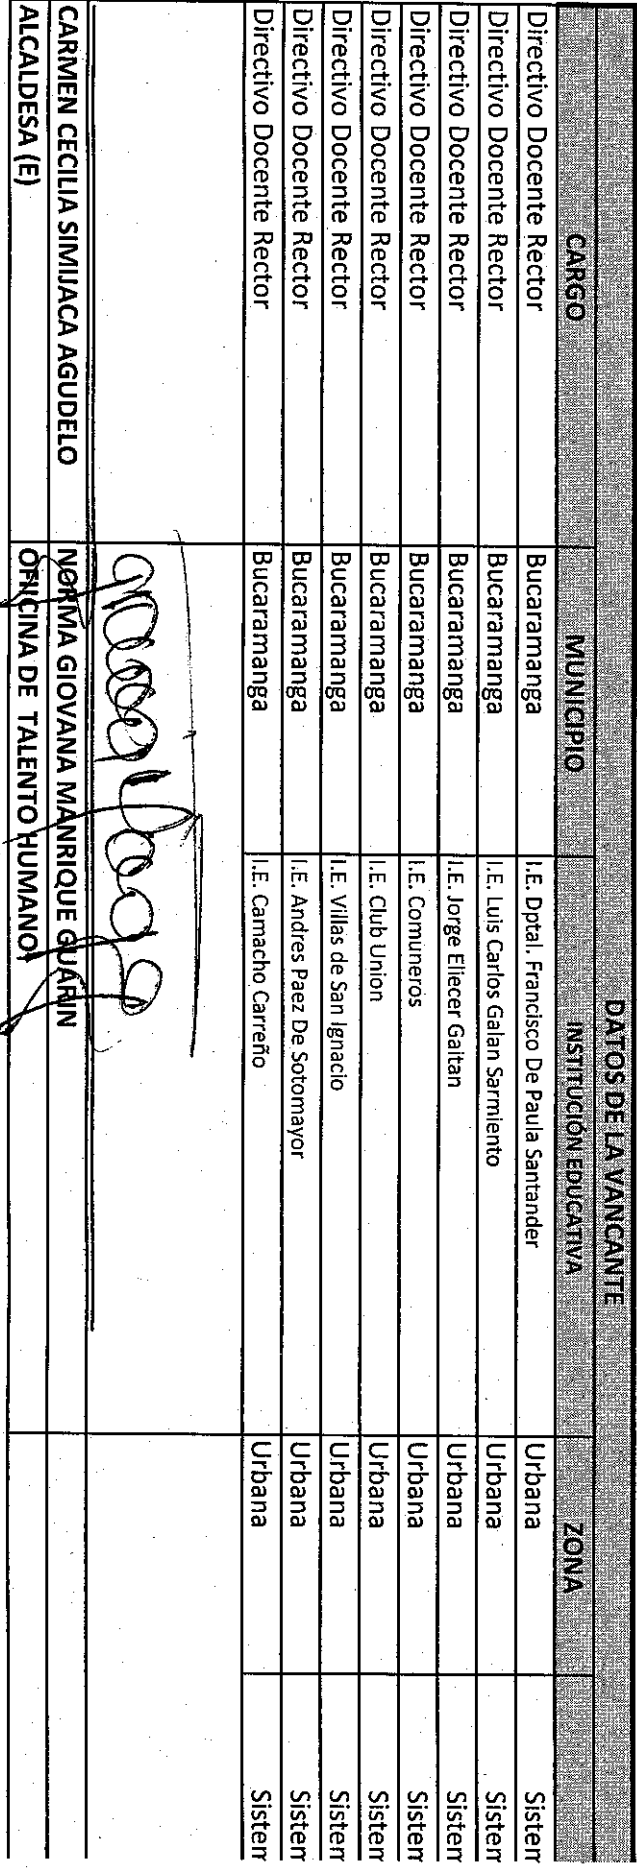 DATOS DE LA VANCANTE
CARGO MUNICIPIO INSTITUCIÓN EDUCATIVA ZONA
Directivo Docente Rector Bucaramanga I.E. Dptal. Francisco De Paula Santander Urbana Sistem
Directivo Docente Rector Bucaramanga I.E. Luis Carlos Galan Sarmiento Urbana Sistem
Directivo Docente Rector Bucaramanga I.E. Jorge Eliecer Gaitan Urbana Sistem
Directivo Docente Rector Bucaramanga I.E. Comuneros Urbana Sistem
Directivo Docente Rector Bucaramanga I.E. Club Union Urbana Sistem
Directivo Docente Rector Bucaramanga I.E. Villas de San Ignacio Urbana Sistem
Directivo Docente Rector Bucaramanga I.E. Andres Paez De Sotomayor Urbana Sistem
Directivo Docente Rector Bucaramanga I.E. Camacho Carreño Urbana Sistem
CARMEN CECILIA SIMIJACA AGUDELO NORMA GIOVANA MANRIQUE GUARIN
ALCALDESA (E) OFICINA DE TALENTO HUMANO